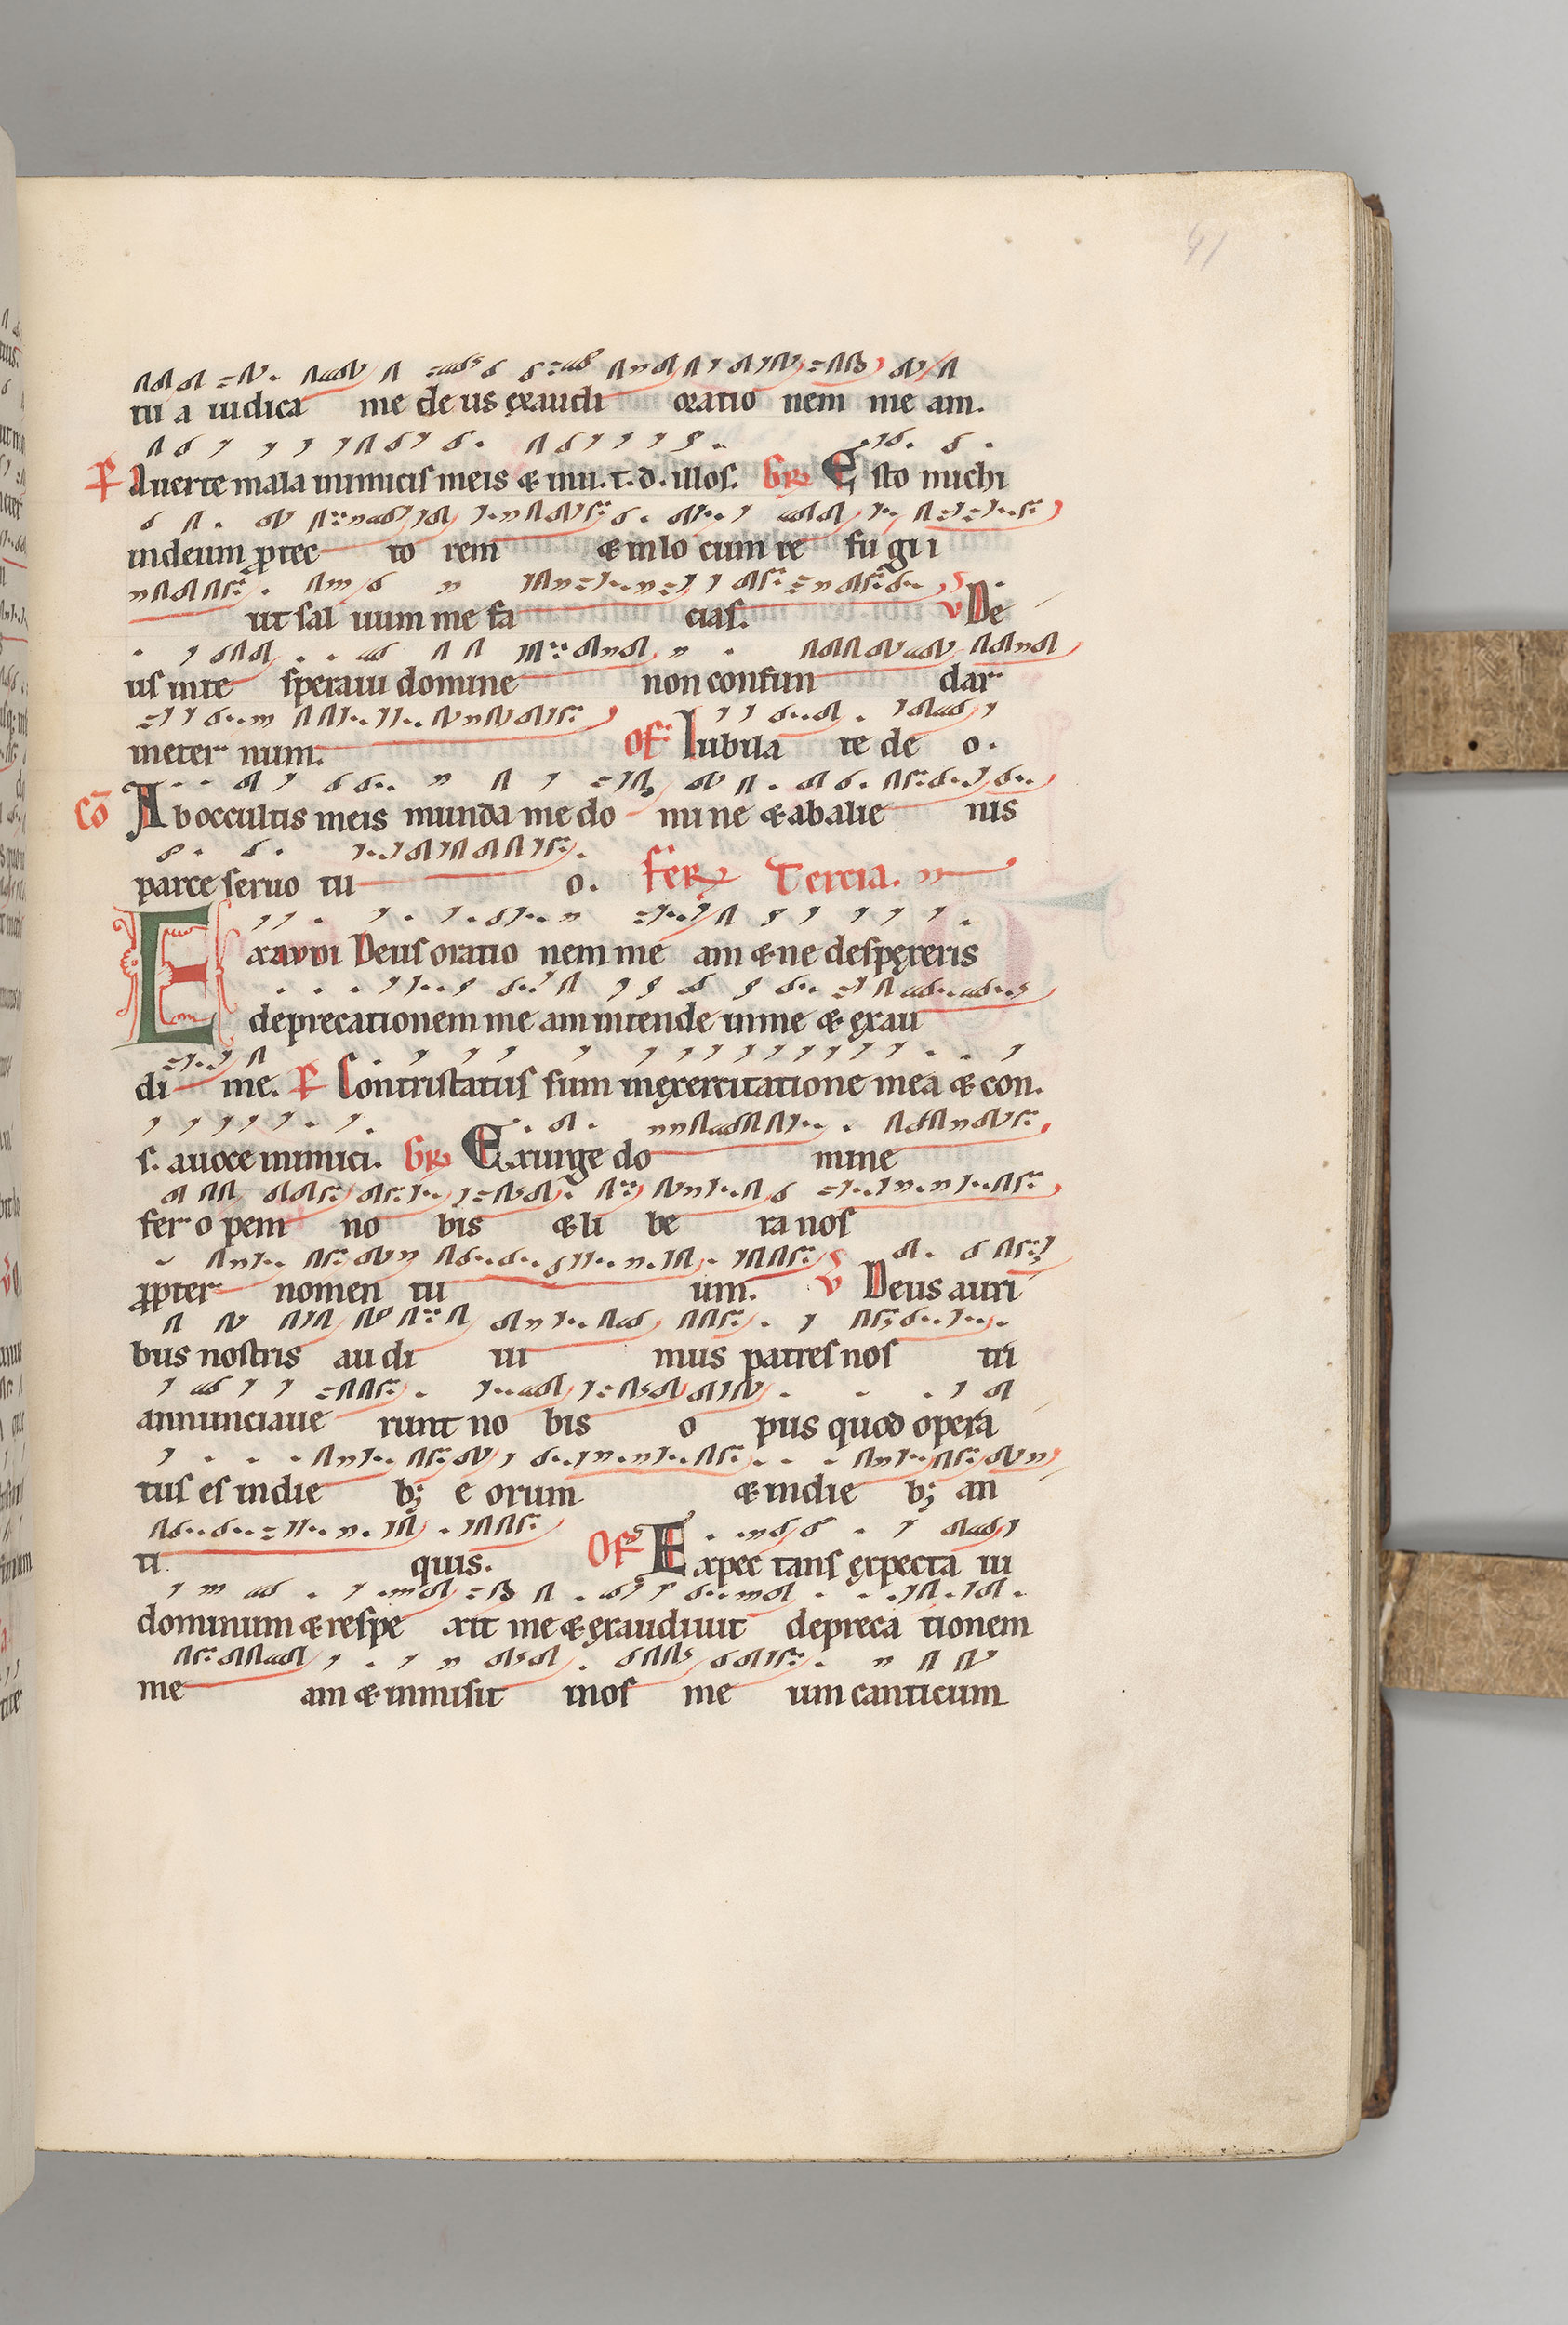 41
tu a iudica me de us exaudi oratio nem me am.
P Auerte mala inimicis meis & inu. t. d. illos. GR Esto michi
indeum protec to rem & inlo cum re fu gi i
ut sal uum me fa cias. V De
us inte speraui domine non confun dar
ineter num. OF Iubila te de o.
Co Ab occultis meis munda me do mi ne & abalie nis
parce seruo tu o. Fer Tercia.
Exaudi Deus oratio nem me am & ne despexeris
deprecationem me am intende inme & exau
di me. P Contristatus sum inexercitatione mea & con.
s. auoce inimici. GR Exurge do mine
fer o pem no bis & li be ra nos
propter nomen tu um. V Deus auri
bus nostris au di ui mus patres nos tri
annunciaue runt no bis o pus quod opera
tus es indie b; e orum & indie b; an
ti quis. OF Expec tans expecta ui
dominum & respe xit me & exaudiuit depreca tionem
me am & inmisit inos me um canticum